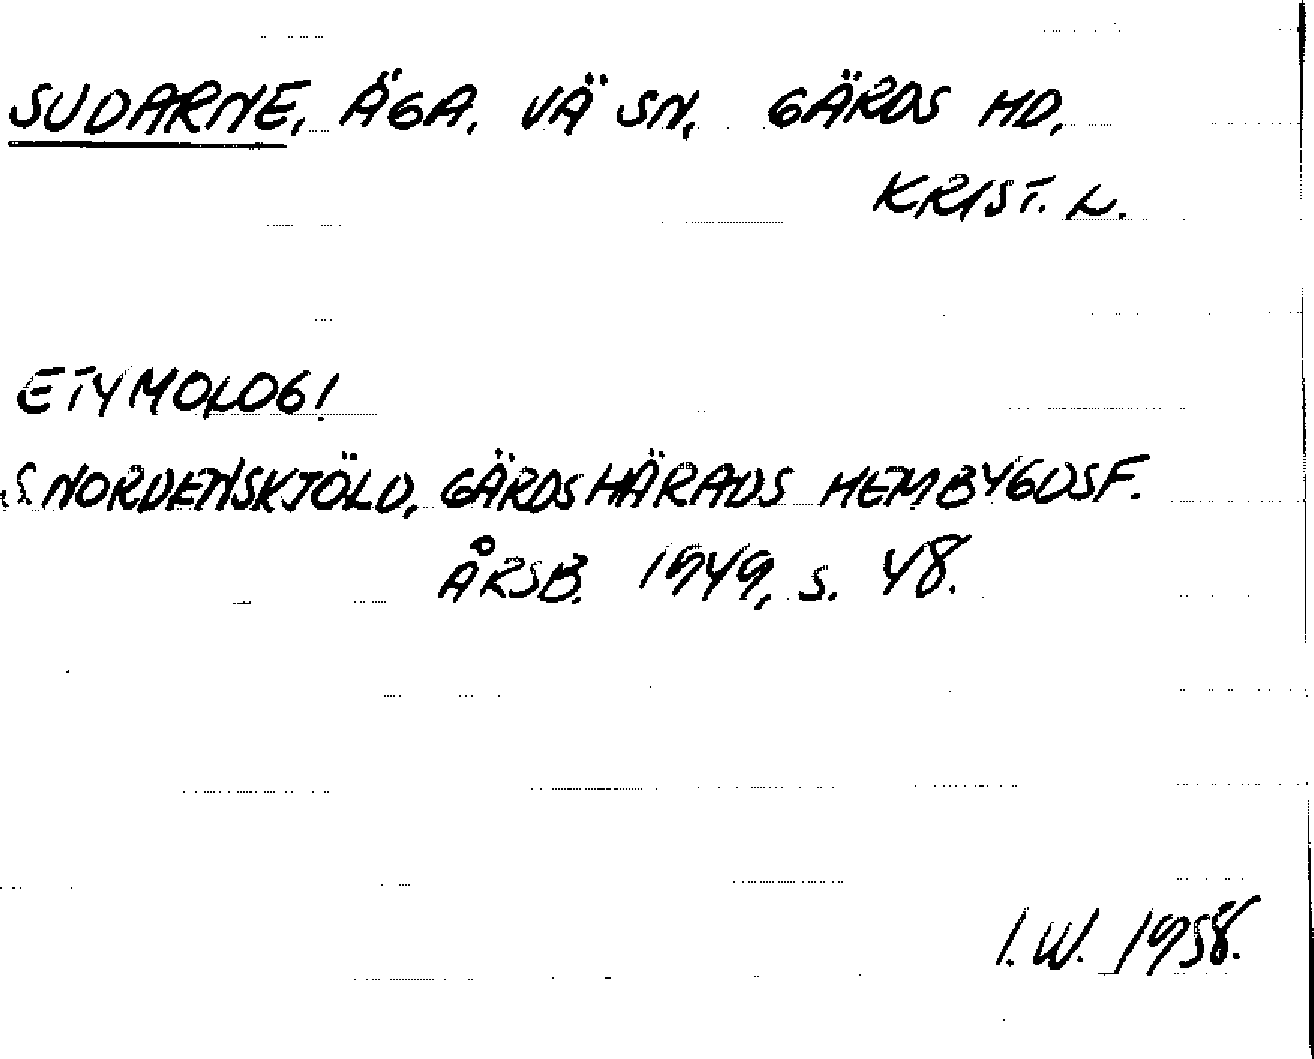 SUDARNE, ÄGA, VÄ SN, GÄRDS HD,
KRIST. L.
ETYMOLOGI
S NORDENSKJÖLD, GÄRDS HÄRADS HEMBYGDSF.
ÅRSB. 1949, S. 48.
I.W. 1958.